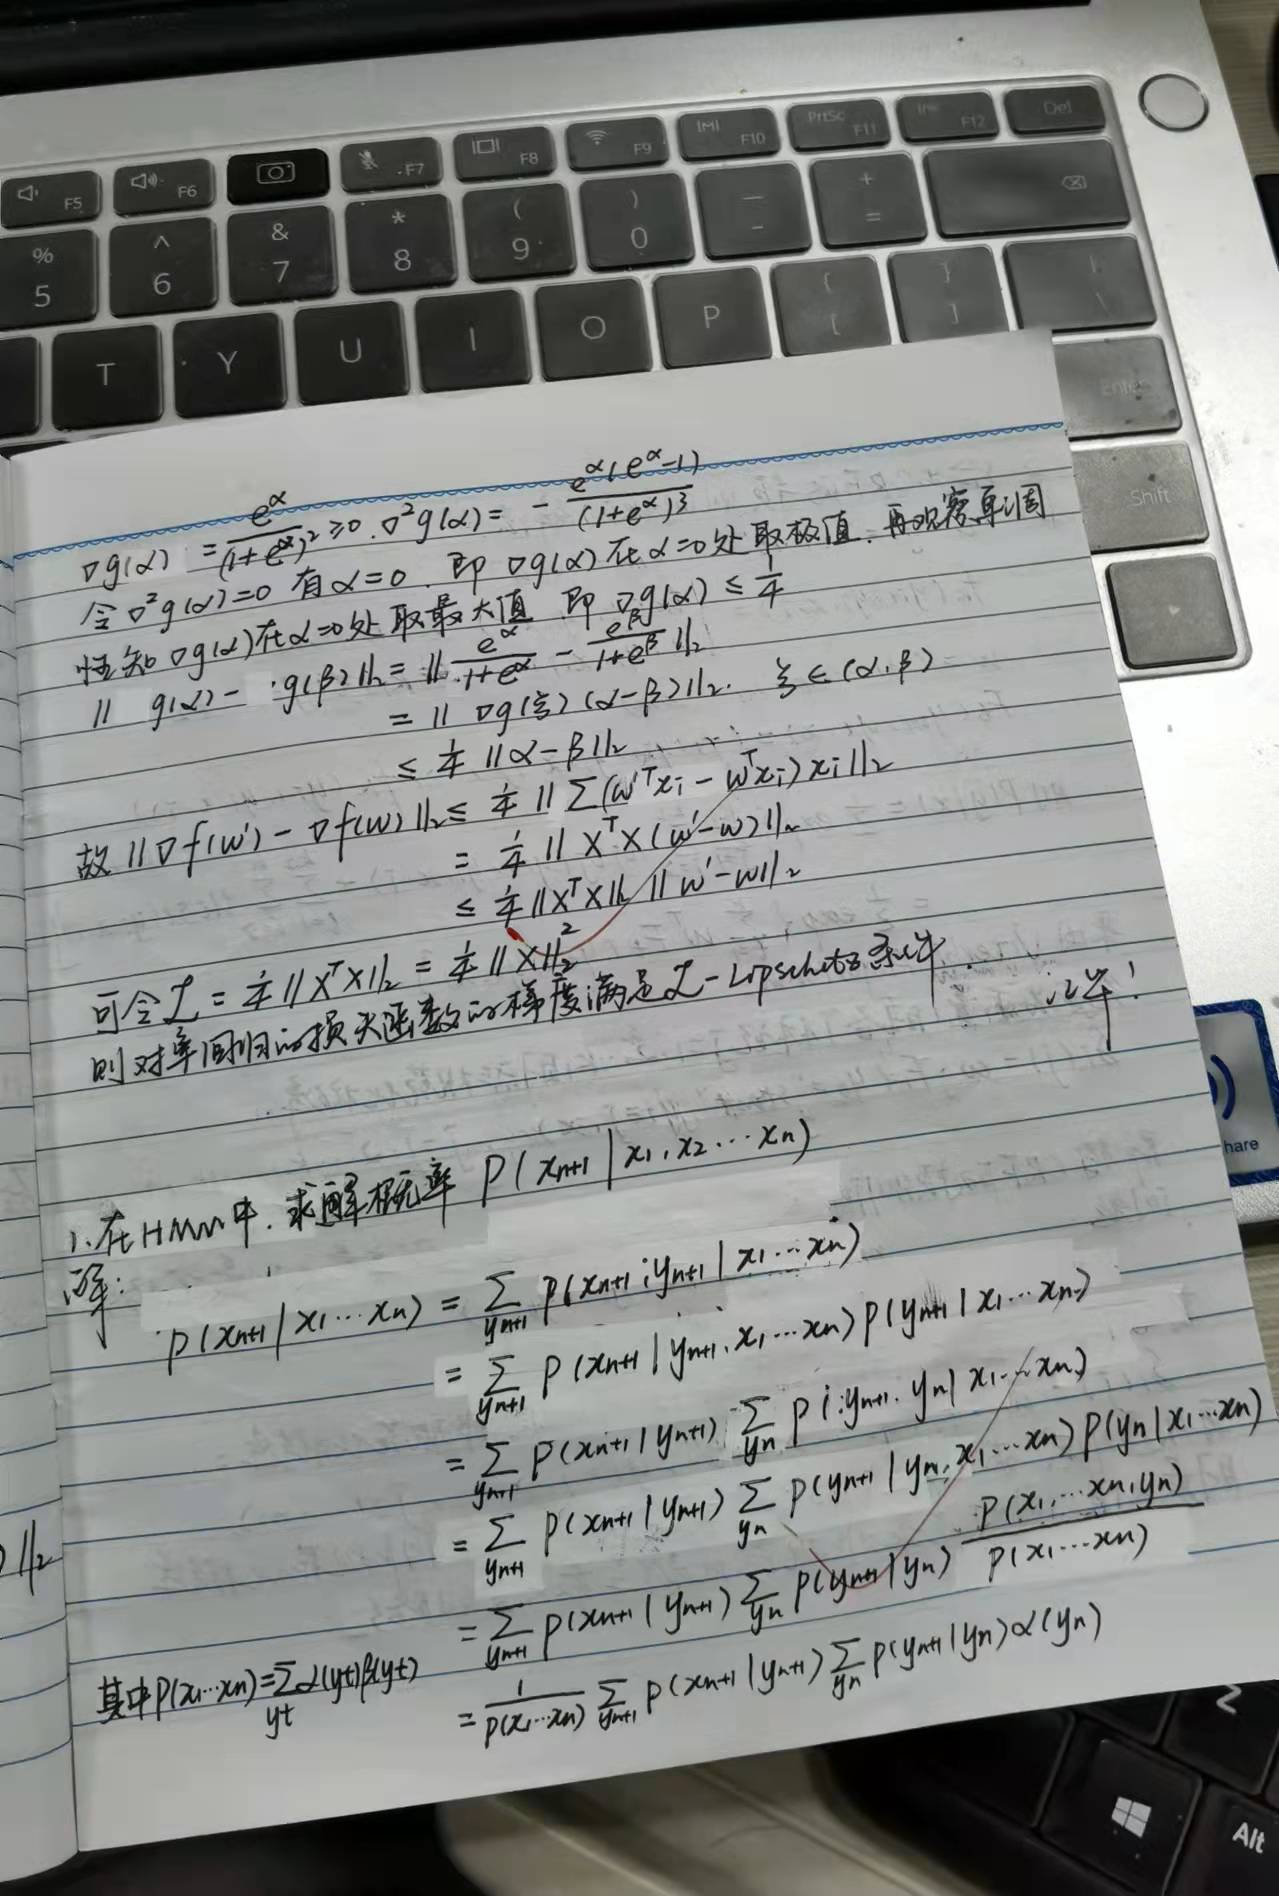 F5 F6 F7 F8 F9 F10 PrtSc F11 Ins F12 Del
% 5 ^ 6 & 7 * 8 ( 9 ) 0 — - + =
T Y U I O P { [ } ] | \
Enter
Shift
∇g(α) = e^α/(1+e^α)² ≥0. ∇²g(α) = - e^α(e^α-1)/(1+e^α)³
令∇²g(α)=0 有α=0. 即 ∇g(α)在α=0处取极值. 再观察单调
性知∇g(α)在α=0处取最大值 即 ∇g(α) ≤ 1/4
|| g(α) - g(β)||₂ = || e^α/(1+e^α) - e^β/(1+e^β) ||₂
= || ∇g(ξ)(α-β)||₂. ξ∈(α,β)
≤ 1/4 ||α-β||₂
故 ||∇f(w')-∇f(w)||₂ ≤ 1/4 || Σ(w'ᵀxᵢ - wᵀxᵢ)xᵢ||₂
= 1/4 || XᵀX(w'-w)||₂
≤ 1/4 ||XᵀX||₂ ||w'-w||₂
可令L = 1/4 ||XᵀX||₂ = 1/4 ||X||₂²
则对率回归的损失函数的梯度满足L-Lipschitz条件. 证毕!
hare
1. 在HMM中. 求解概率 P(xn+1 | x1, x2 ··· xn)
解:
P(xn+1 | x1 ··· xn) = Σ_{yn+1} P(xn+1, yn+1 | x1 ··· xn)
= Σ_{yn+1} P(xn+1 | yn+1, x1 ··· xn) P(yn+1 | x1 ··· xn)
= Σ_{yn+1} P(xn+1 | yn+1) Σ_{yn} P(yn+1, yn | x1 ··· xn)
= Σ_{yn+1} P(xn+1 | yn+1) Σ_{yn} P(yn+1 | yn, x1 ··· xn) P(yn | x1 ··· xn)
) ||₂
= Σ_{yn+1} P(xn+1 | yn+1) Σ_{yn} P(yn+1 | yn) P(x1, ··· xn, yn)/P(x1 ··· xn)
其中P(x1 ··· xn) = Σ_{yt} α(yt)β(yt)
= 1/P(x1 ··· xn) Σ_{yn+1} P(xn+1 | yn+1) Σ_{yn} P(yn+1 | yn) α(yn)
Z
Alt